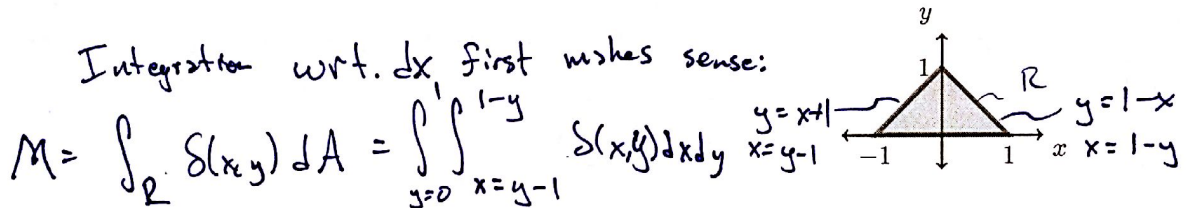 Integration wrt. dx first makes sense:
M = ∫_R δ(x,y) dA = ∫_{y=0}^{1} ∫_{x=y-1}^{1-y} δ(x,y) dx dy
y
1
R
y = x+1
x = y-1
y = 1-x
x = 1-y
-1
1
x